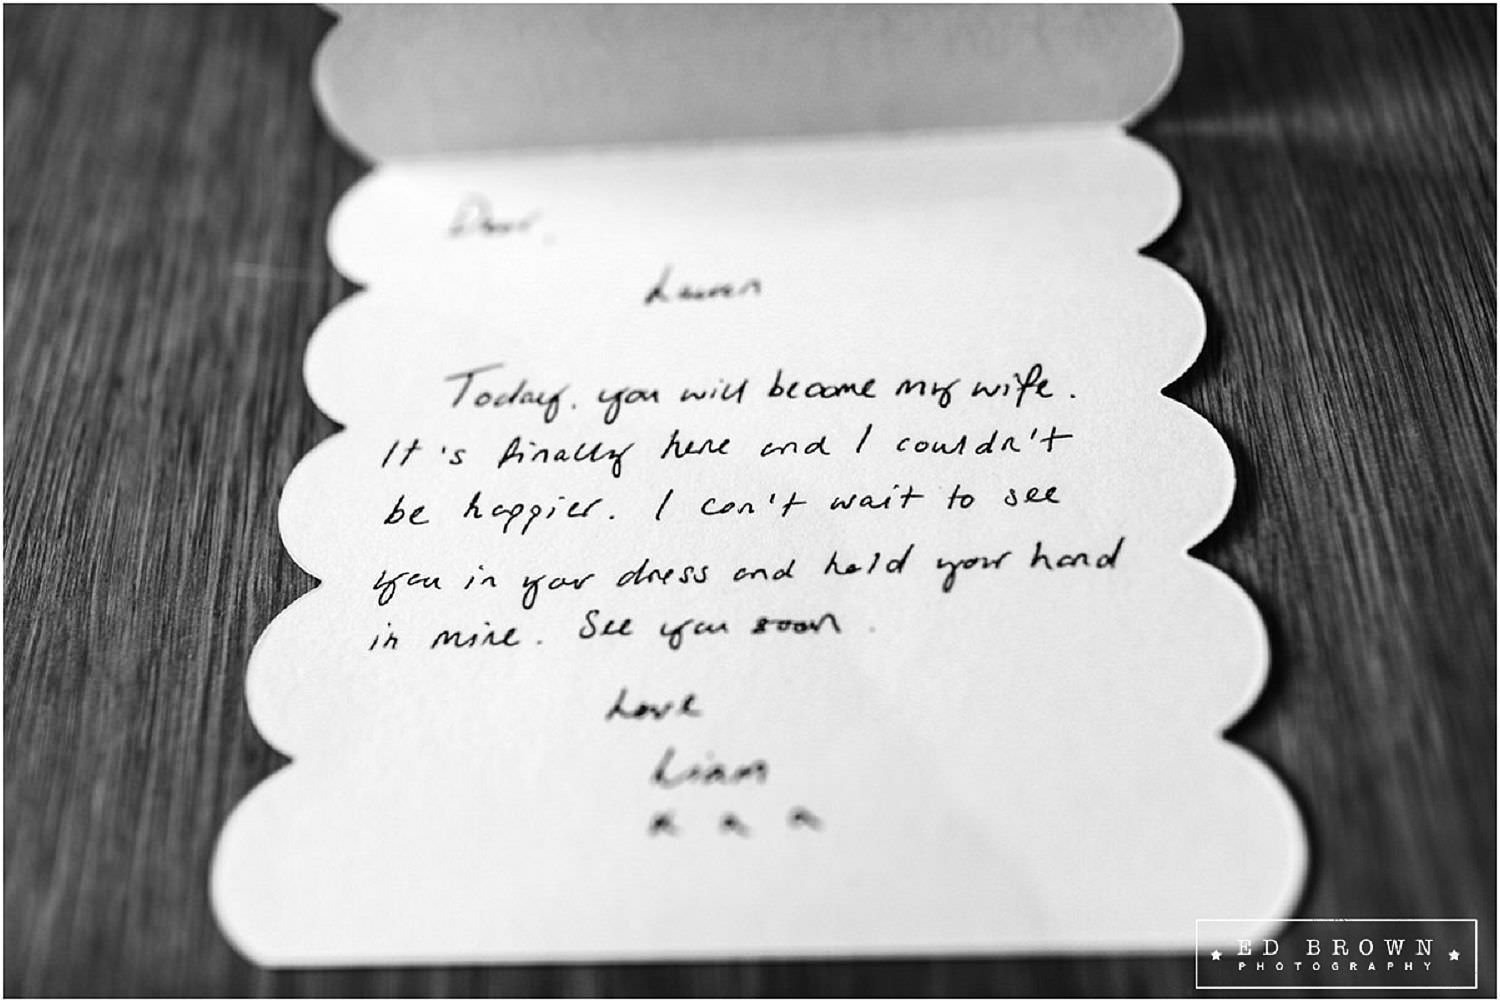 Dear,
Lauren
Today, you will become my wife.
It's finally here and I couldn't
be happier. I can't wait to see
you in your dress and hold your hand
in mine. See you soon.
Love
Liam
x x x
ED BROWN
PHOTOGRAPHY